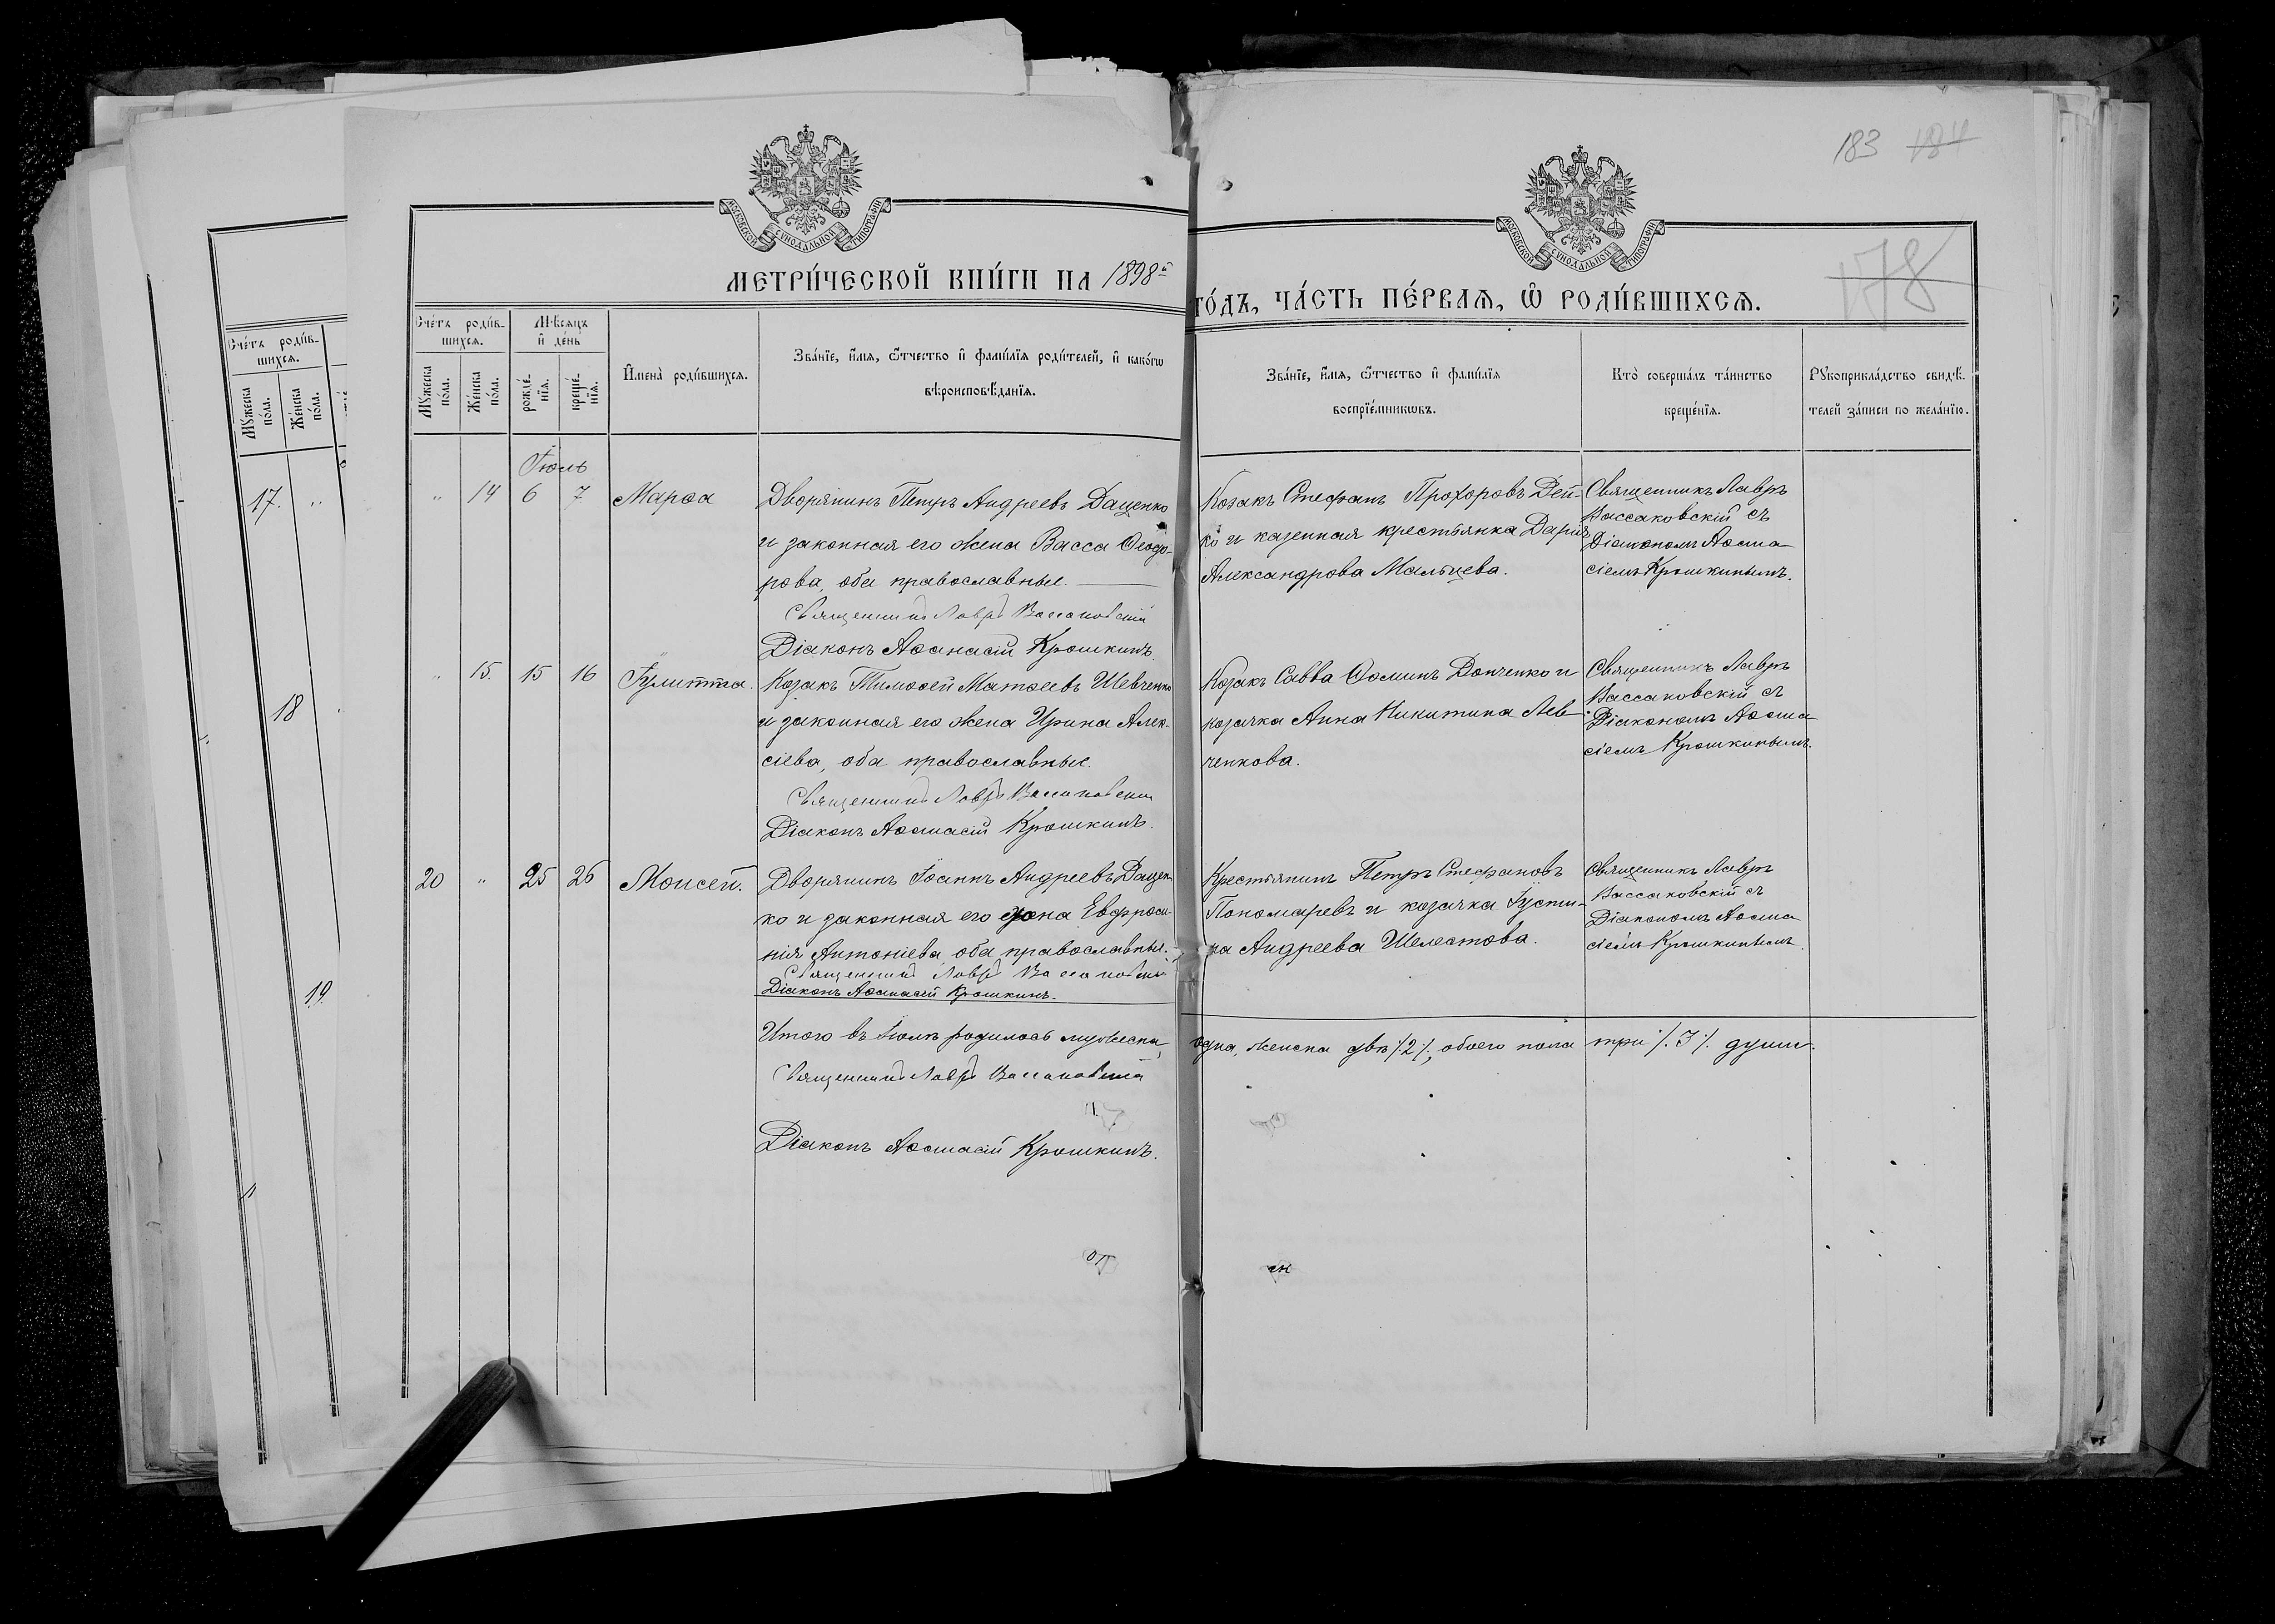 183 184
178
МОСКОВСКОЙ СѴНОДАЛЬНОЙ ТИПОГРАФІИ
МОСКОВСКОЙ СѴНОДАЛЬНОЙ ТИПОГРАФІИ
МЕТРИ́ЧЕСКОЙ КНИ́ГИ НА 1898й
ГО́ДЪ, ЧА́СТЬ ПЕ́РВАѦ, Ѽ РОДИ́ВШИХСѦ.
Сче́тъ роди́в-
шихсѧ.
Мꙋ́жеска
по́ла.
Же́нска
по́ла.
17. "
18
19.
Сче́тъ роди́в-
шихсѧ.
Мꙋ́жеска
по́ла.
Же́нска
по́ла.
Мѣ́сѧцъ
и҆ де́нь
рожде́-
нїѧ.
креще́-
нїѧ.
И҆мена̀ роди́вшихсѧ.
Зва́нїе, и҆́мѧ, ѻ҆́тчество и҆ фами́лїѧ роди́телей, и҆ како́гѡ
вѣроисповѣ́данїѧ.
Зва́нїе, и҆́мѧ, ѻ҆́тчество и҆ фами́лїѧ
воспрїе́мникѡвъ.
Кто̀ соверша́лъ та́инство
креще́нїѧ.
Рꙋкоприкла́дство свидѣ́-
телей за́писи по жела́нїю.
Іюль
" 14 6 7 Марѳа
Дворянинъ Петръ Андреевъ Даценко
и законная его жена Васса Ѳеодо-
рова, оба православные.
Священникъ Лавръ Вассаковскій
Діаконъ Аѳанасій Крошкинъ.
Козакъ Стефанъ Прохоровъ Дей-
ко и казенная крестьянка Дарія
Александрова Мальцева.
Священникъ Лавръ
Вассаковскій съ
Діакономъ Аѳана
сіемъ Крошкинымъ.
" 15. 15 16 Іулитта.
Козакъ Тимоѳей Матѳеевъ Шевченко
и законная его жена Ирина Алек-
сіева, оба православные.
Священникъ Лавръ Вассаковскій
Діаконъ Аѳанасій Крошкинъ.
Козакъ Савва Ѳоминъ Донченко и
козачка Анна Никитина Лев-
ченкова.
Священникъ Лавръ
Вассаковскій съ
Діакономъ Аѳана
сіемъ Крошкинымъ.
20 " 25 26 Моисей.
Дворянинъ Іоаннъ Андреевъ Дацен-
ко и законная его жена Евфроси-
нія Антоніева, оба православные.
Священникъ Лавръ Вассаковскій
Діаконъ Аѳанасій Крошкинъ.
Крестьянинъ Петръ Стефановъ
Пономаревъ и козачка Іусти-
на Андреева Шелестова.
Священникъ Лавръ
Вассаковскій съ
Діакономъ Аѳана
сіемъ Крошкинымъ.
Итого въ Іюлѣ родилось мужеска
одна, женска двѣ /.2/., обоего пола три /.3/. души.
Священникъ Лавръ Вассаковскій
Діаконъ Аѳанасій Крошкинъ.